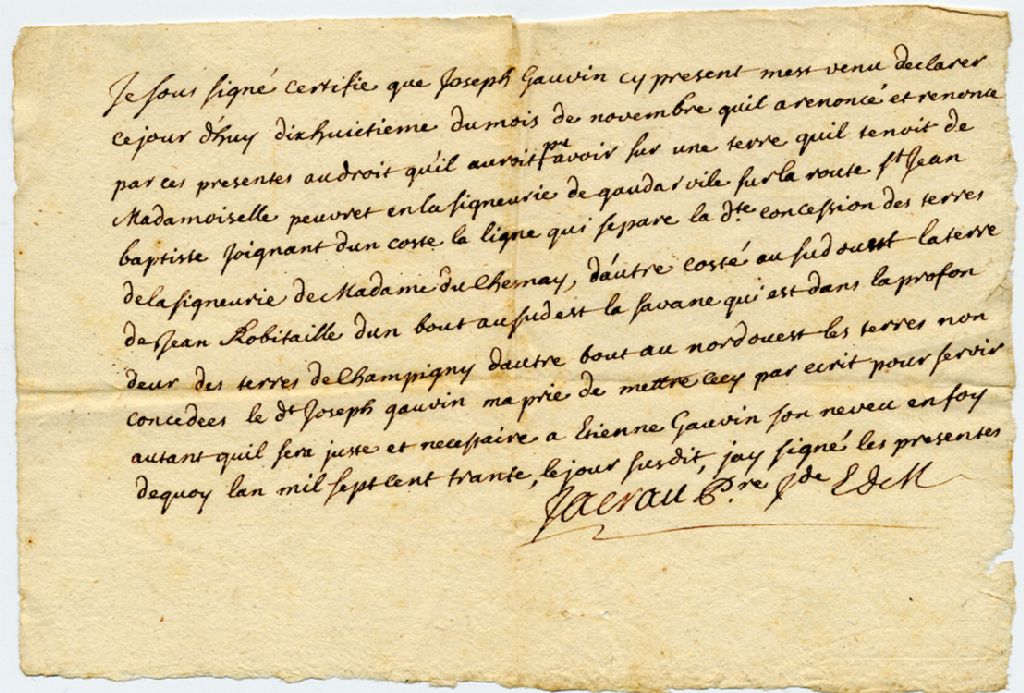 Je sous signé certifie que Joseph Gauvin cy present mest venu declarer
ce jour d'huy dixhuictieme du mois de novembre quil a renoncé et renonce
par ces presentes au droit qu'il auroit pu avoir sur une terre quil tenoit de
Madamoiselle peuvret en la signeurie de gaudarvile sur la route st Jean
baptiste joignant d'un costé la ligne qui separe la dte concession des terres
de la signeurie de Madame du Chesnay, d'autre costé au sud ouest la terre
de Jean Robitaille d'un bout au sud est la savane qui est dans la profon
deur des terres de Champigny d'autre bout au nordouest les terres non
concedées le dt Joseph gauvin ma prié de mettre cecy par ecrit pour servir
autant quil sera juste et necessaire a Etienne Gauvin son neveu en foy
dequoy lan mil sept cent trante, le jour susdit, jay signé les presentes
ptre